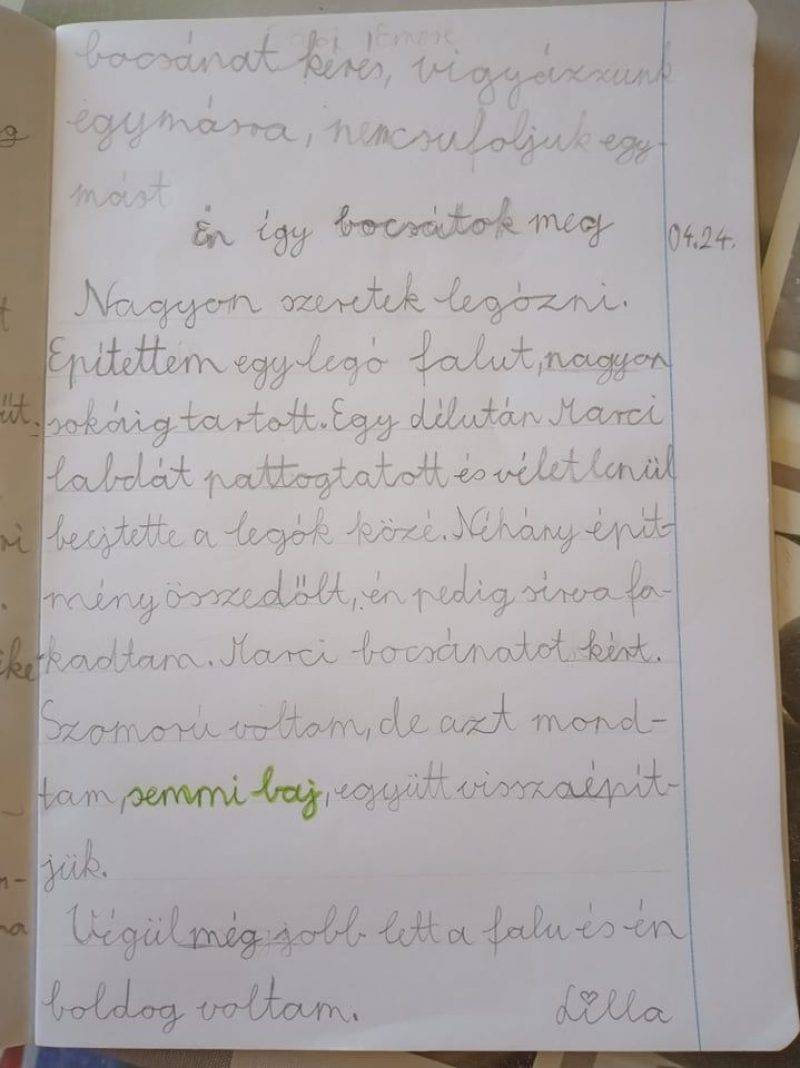 bocsánat kérés, vigyázzunk
egymásra, nem csufoljuk egy-
mást
Én így bocsátok meg 04.24.
Nagyon szeretek legózni.
Építettem egy legó falut, nagyon
sokáig tartott. Egy délután Marci
labdát pattogtatott és véletlenül
beejtette a legók közé. Néhány épít-
mény összedőlt, én pedig sírva fa-
kadtam. Marci bocsánatot kért.
Szomorú voltam, de azt mond-
tam, semmi baj, együtt visszaépít-
jük.
Végül még jobb lett a falu és én
boldog voltam. Lilla